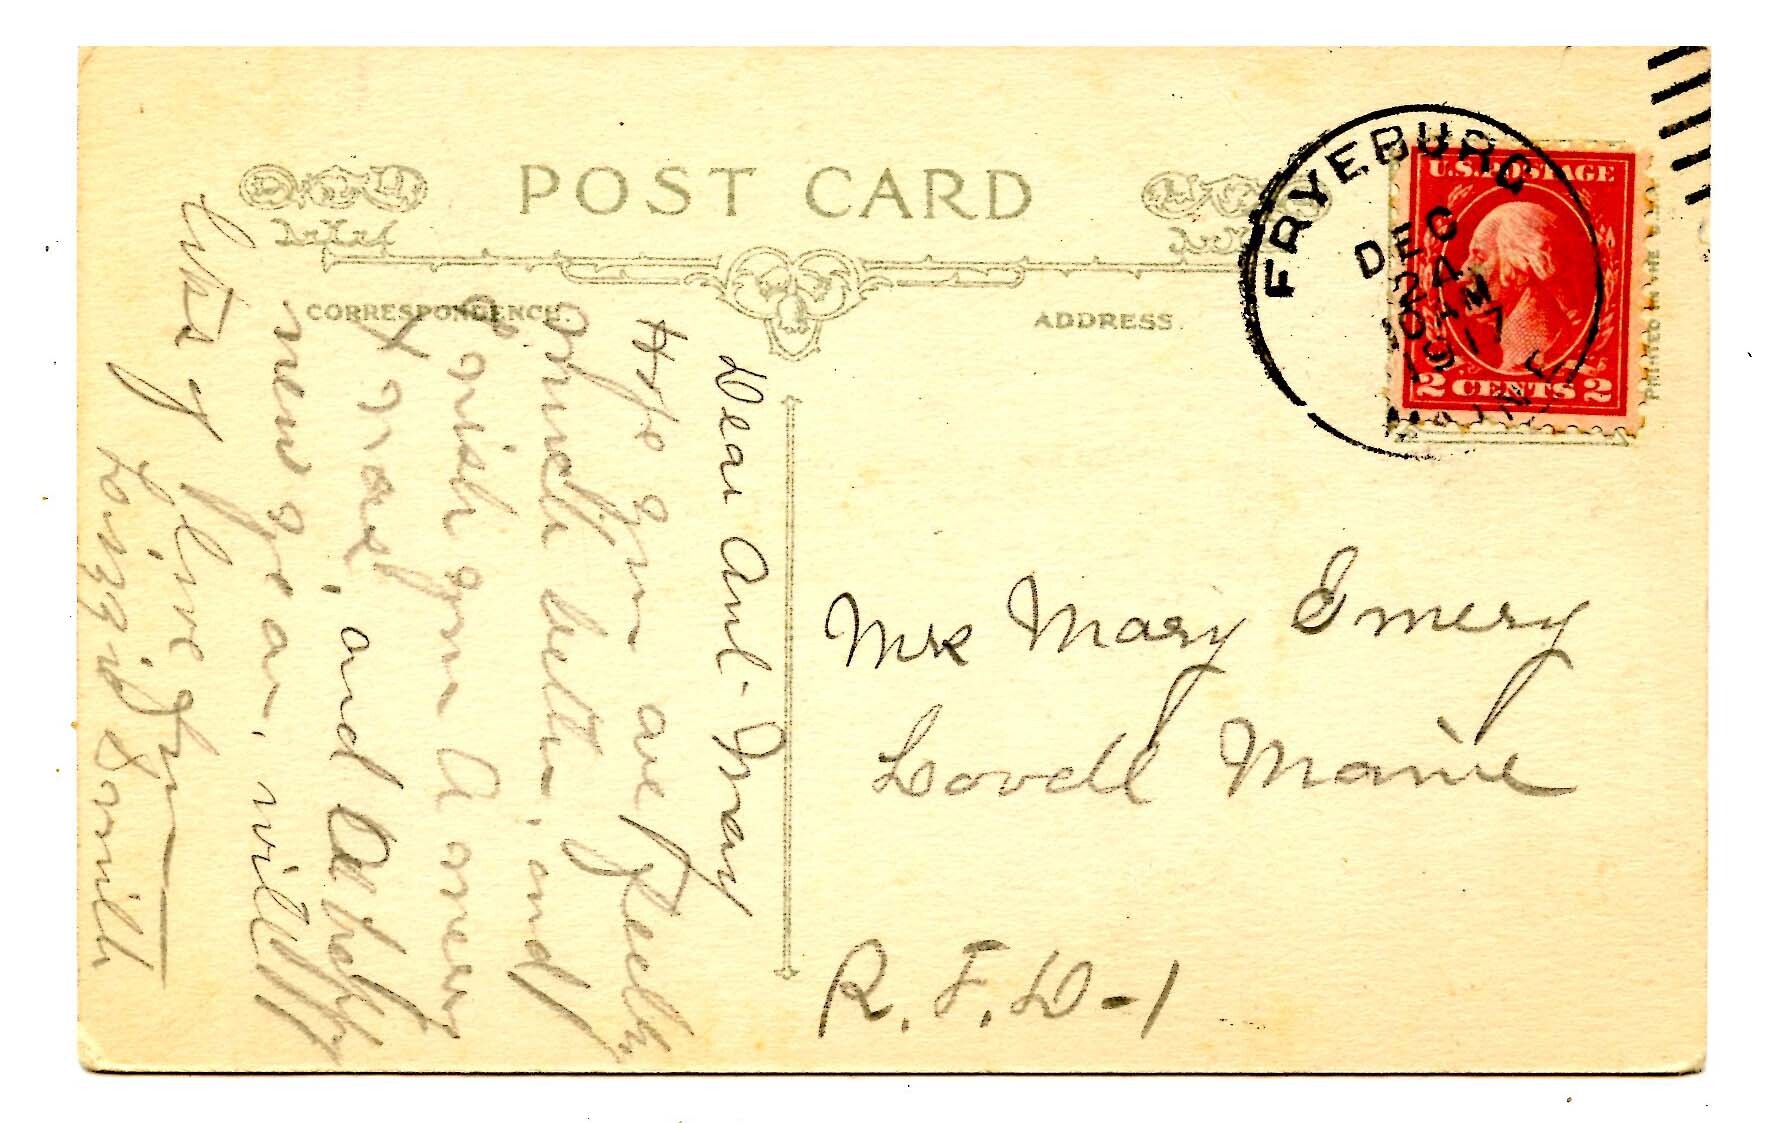 POST CARD
CORRESPONDENCE.
ADDRESS
FRYEBURG
DEC
24
10 AM
1917
MAINE
U.S. POSTAGE
2 CENTS 2
PRINTED IN THE
Dear Aunt- Mary
Hope you are feeling
much better, and
wish you A merry
X mas, and A happy
new year, with
lots of love from
Mrs Mary Emery
Lovell Maine
R.F.D-1